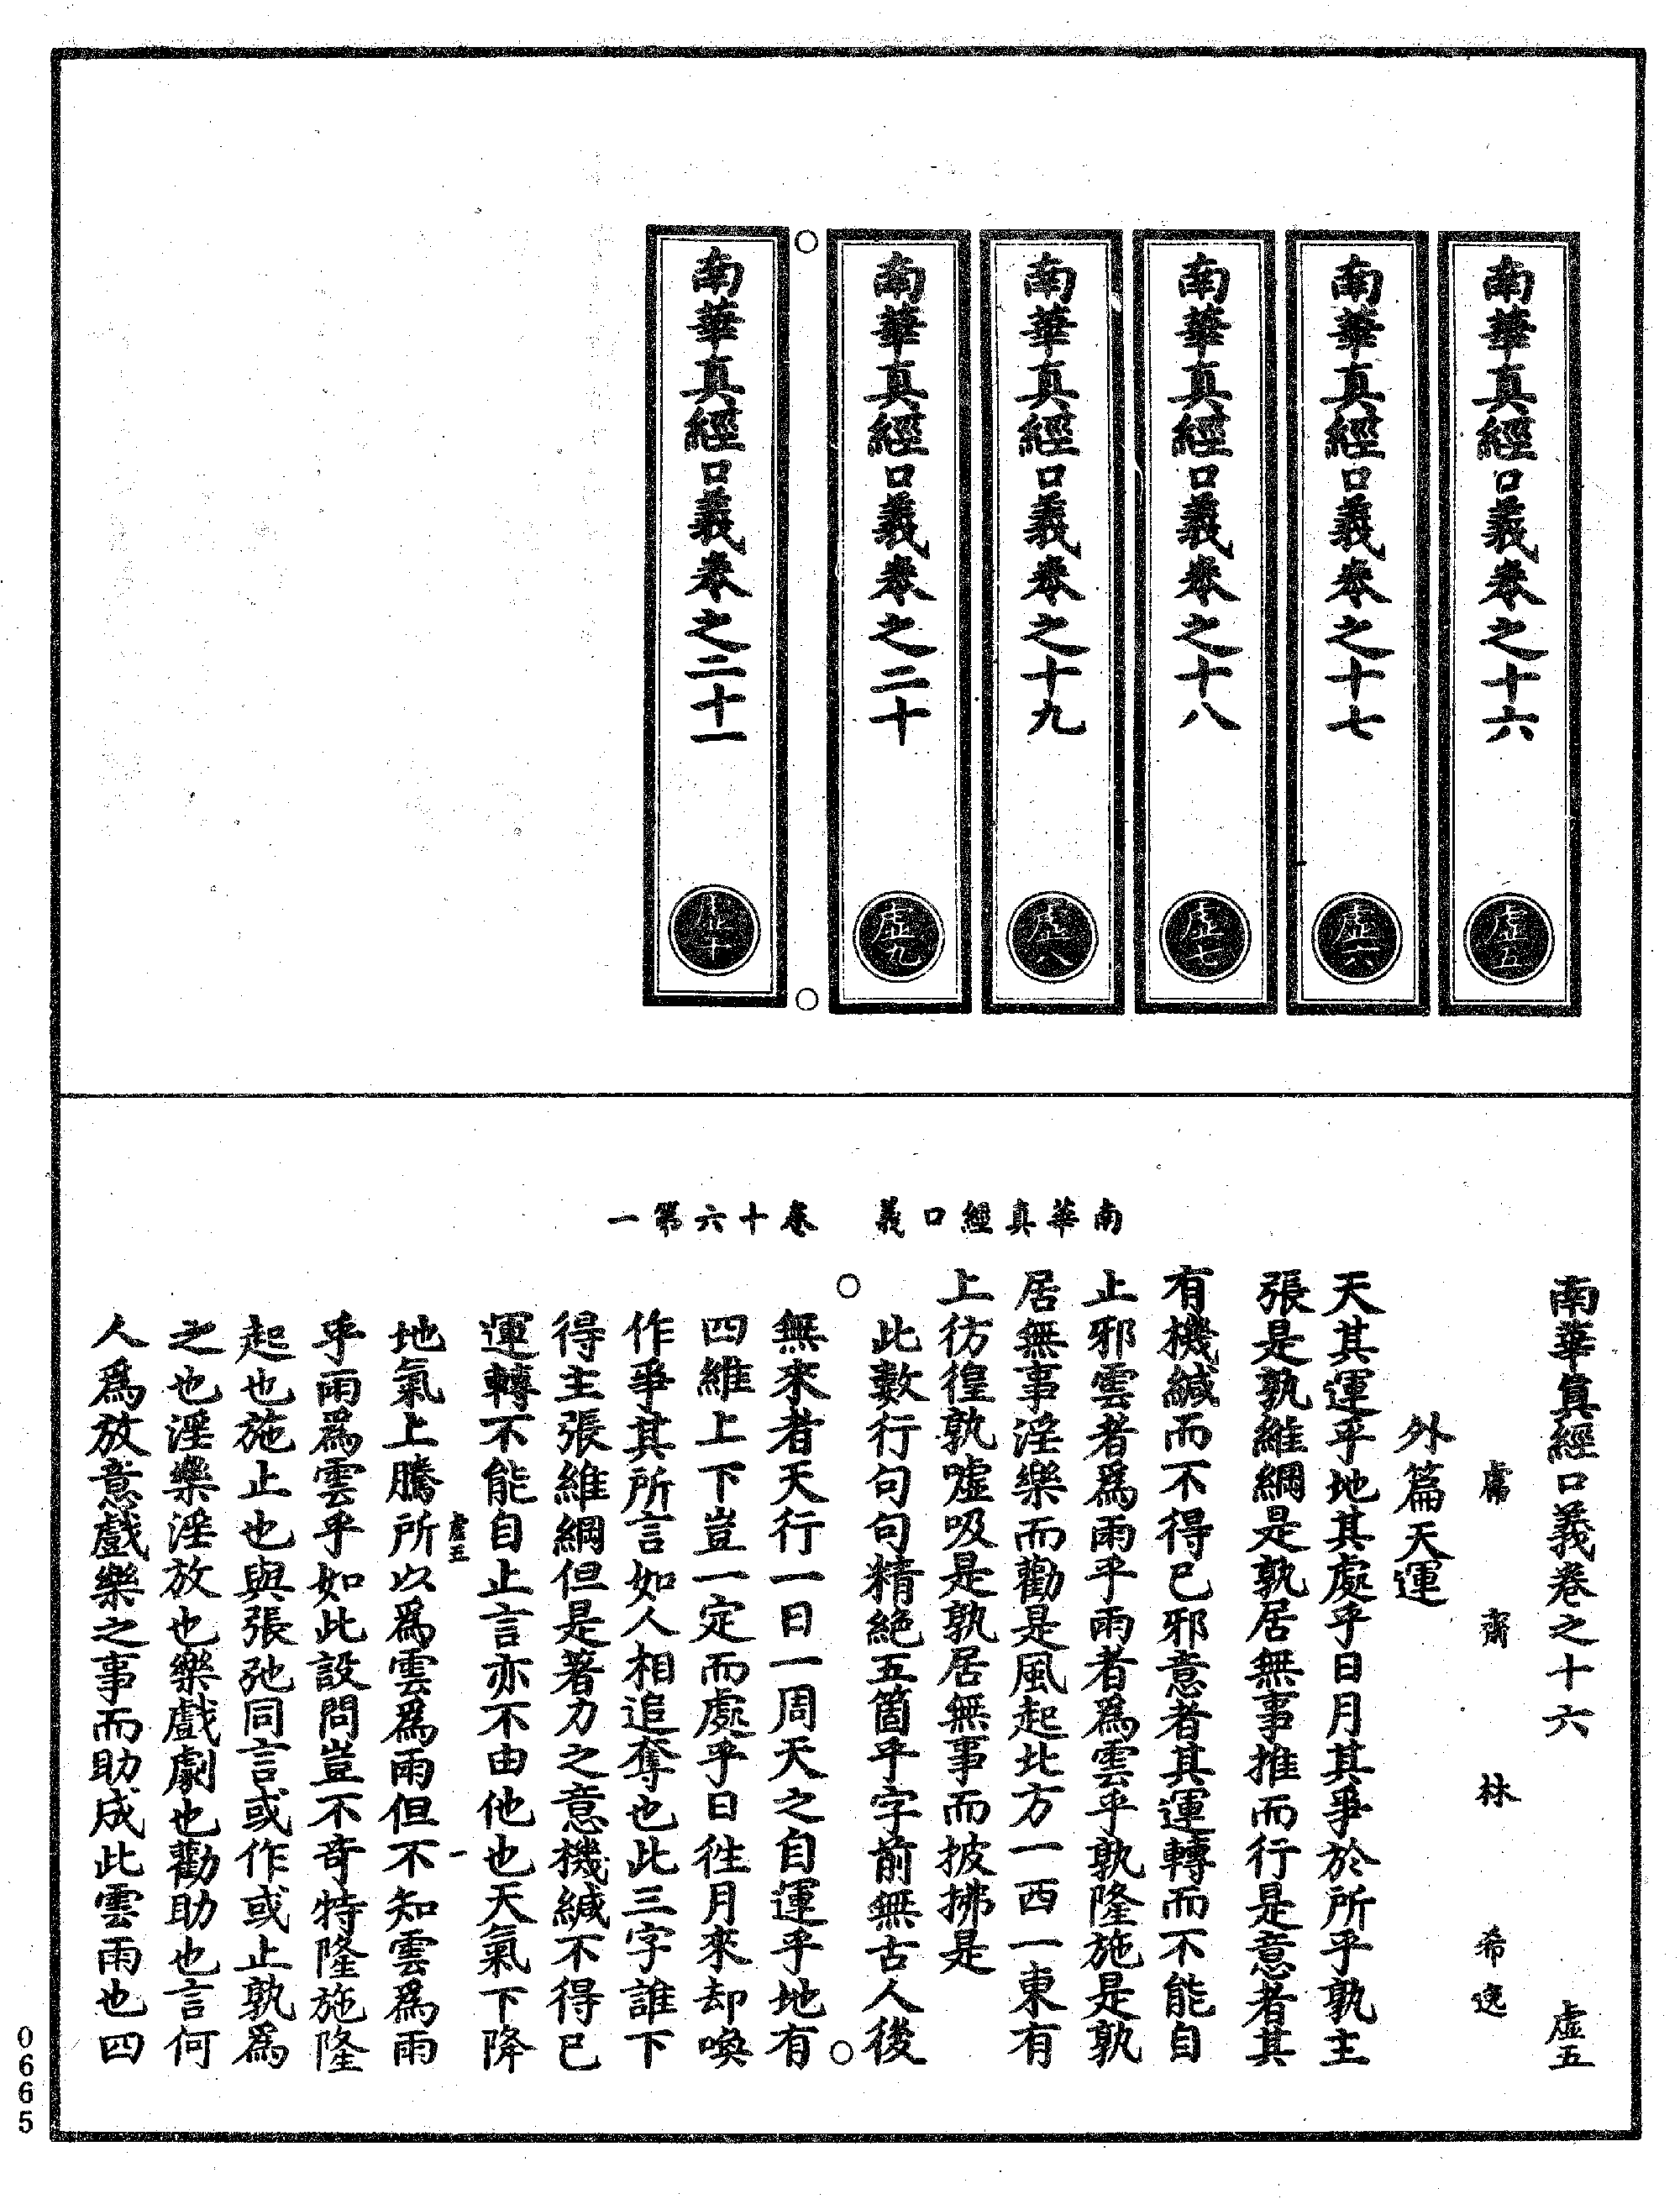 南華真經口義卷之十六
虛五
南華真經口義卷之十七
虛六
南華真經口義卷之十八
虛七
南華真經口義卷之十九
虛八
南華真經口義卷之二十
虛九
南華真經口義卷之二十一
虛十
南華真經口義　卷十六第一
南華真經口義卷之十六　虛五
鬳齋林希逸
外篇天運
天其運乎地其處乎日月其爭於所乎孰主
張是孰維綱是孰居無事推而行是意者其
有機緘而不得已邪意者其運轉而不能自
止邪雲者爲雨乎雨者爲雲乎孰隆施是孰
居無事淫樂而勸是風起北方一西一東有
上彷徨孰噓吸是孰居無事而披拂是
此數行句句精絕五箇乎字前無古人後
無來者天行一日一周天之自運乎地有
四維上下豈一定而處乎日徃月來却喚
作爭其所言如人相追奪也此三字誰下
得主張維綱但是著力之意機緘不得已
運轉不能自止言亦不由他也天氣下降
虛五　一
地氣上騰所以爲雲爲雨但不知雲爲雨
乎雨爲雲乎如此設問豈不奇特隆施隆
起也施止也與張弛同言或作或止孰爲
之也淫樂淫放也樂戲劇也勸助也言何
人爲放意戲樂之事而助成此雲雨也四
0665